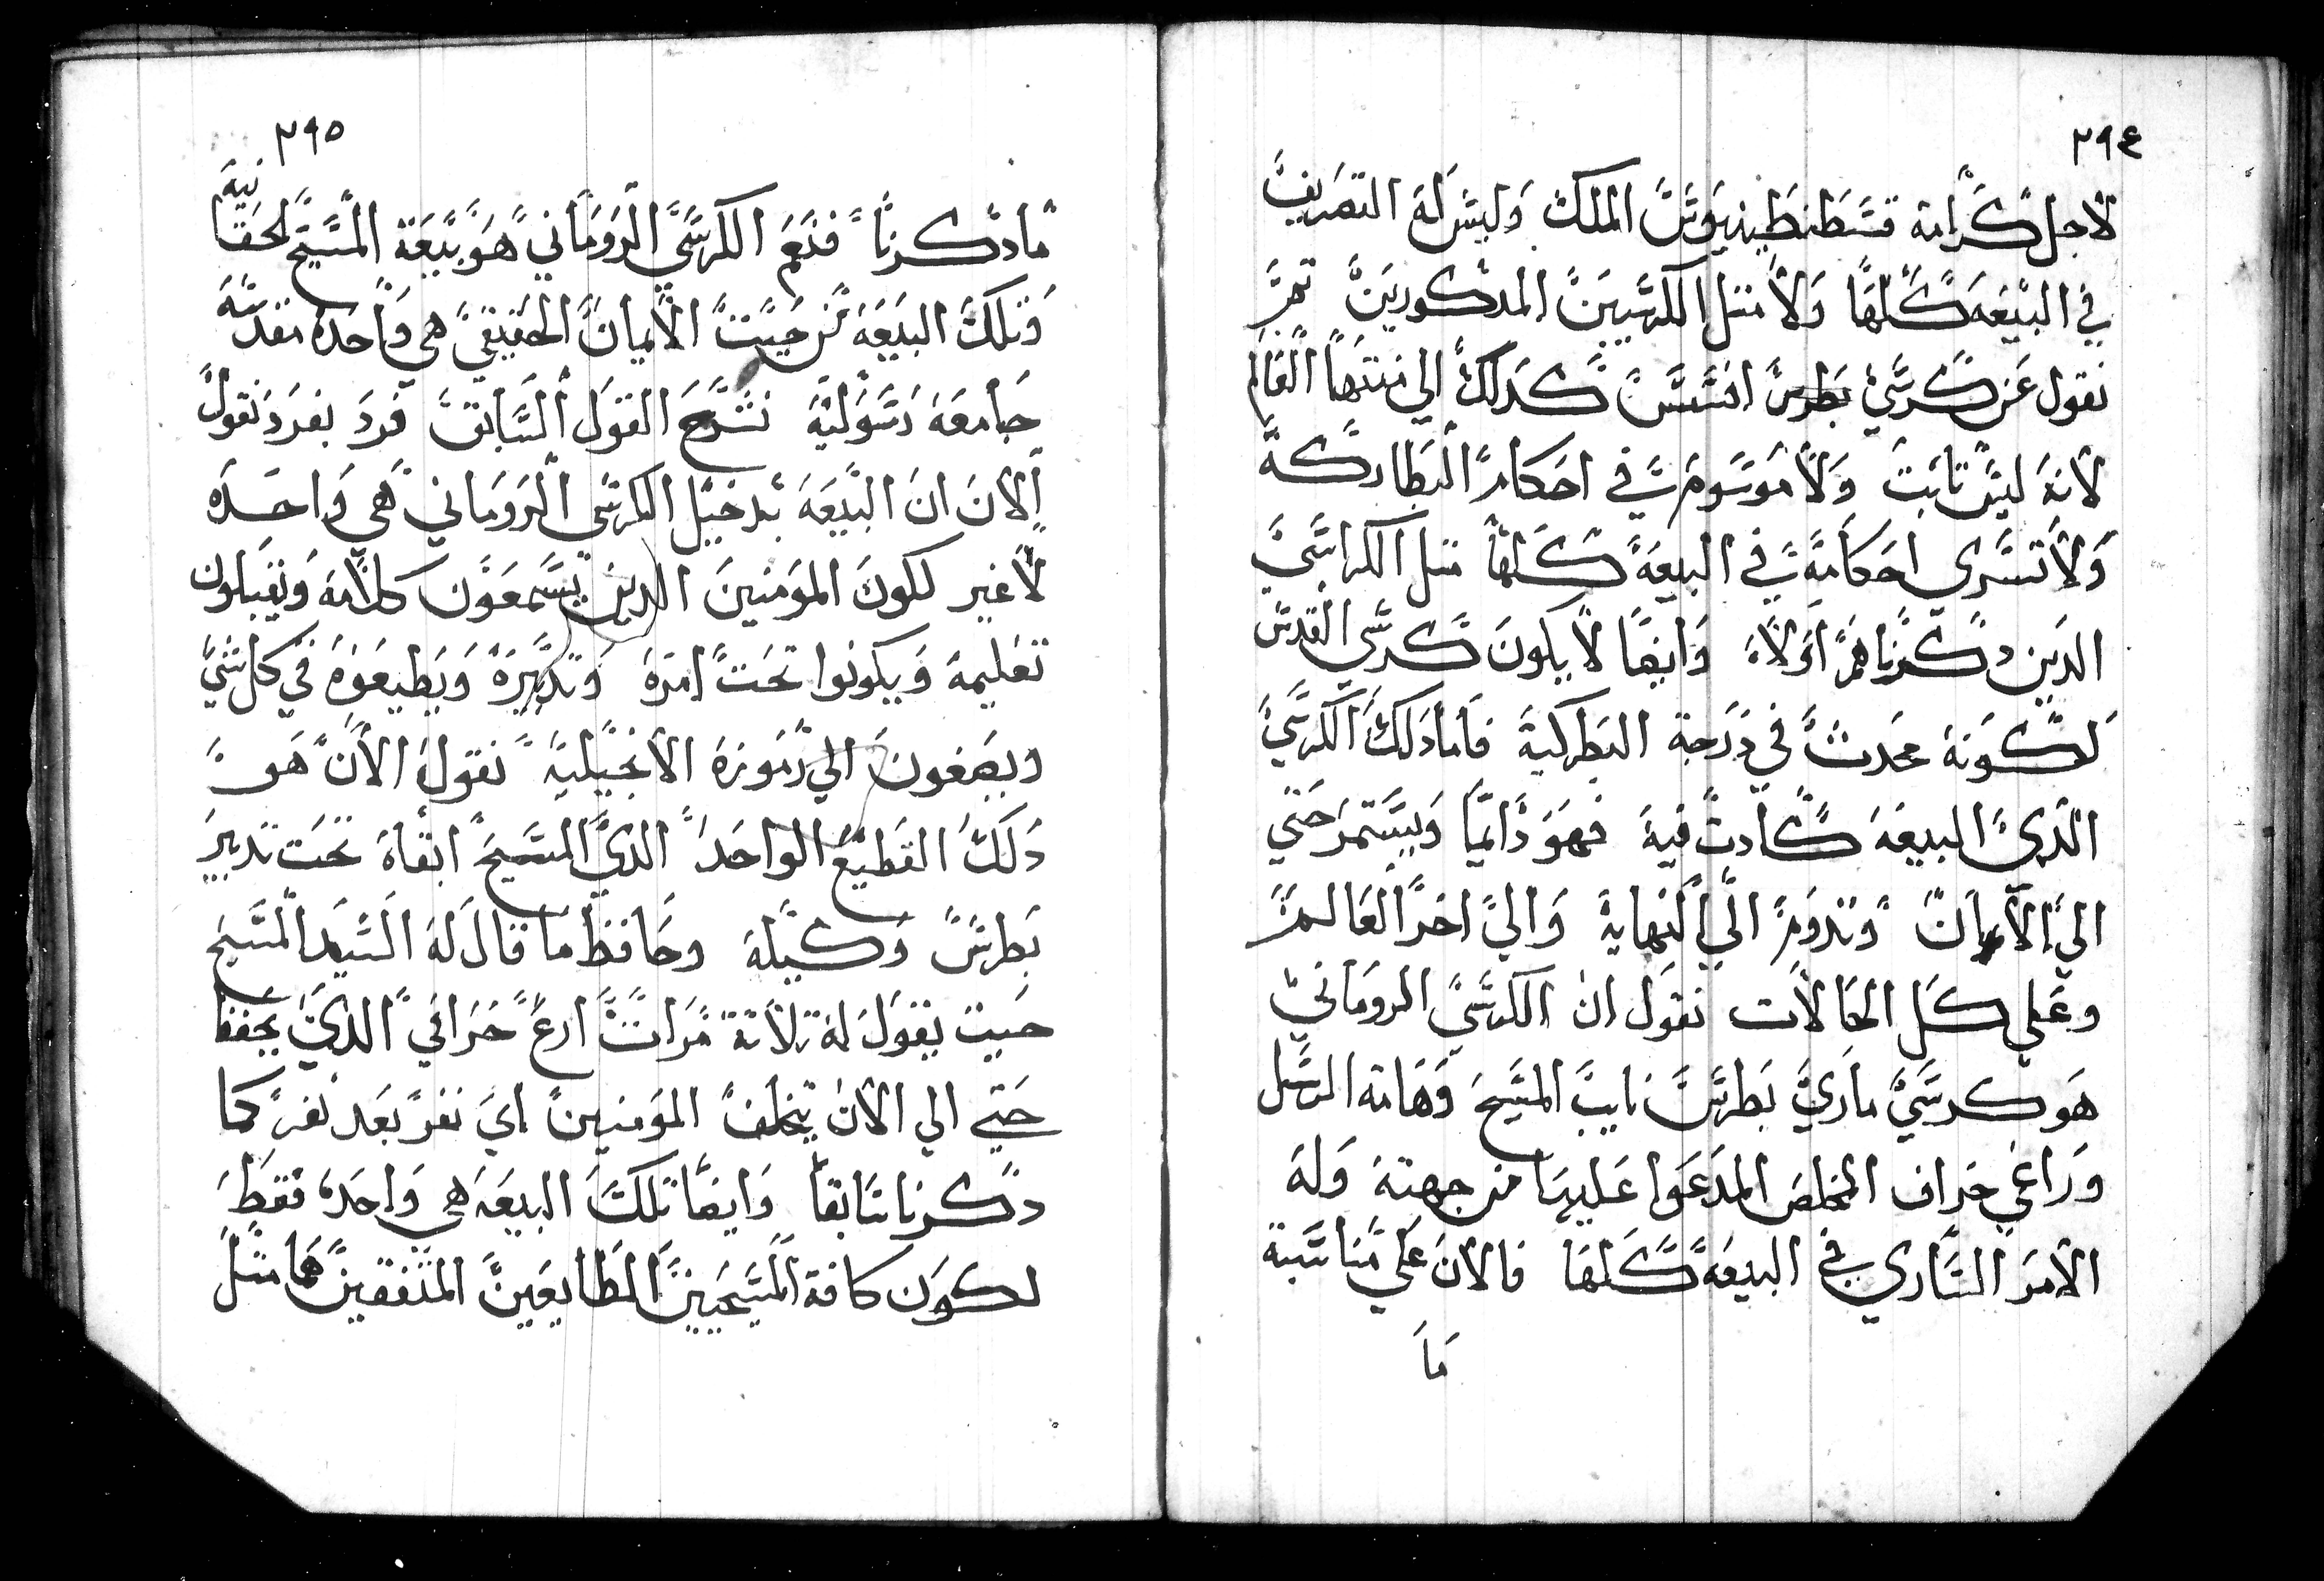 ٢٩٤
لاجل كرامة قسطنطينيوس الملك وليس له التصريف
في البيعه كلها ولا مثل الكرسيين المدكورين ثم
نقول عن كرسي بطرس انسس كدلك الي منتها العالم
لانه ليس تابت ولا موسوم في احكام البطاركة
ولا تسري احكامه في البيعه كلها متل الكراسي
الدين دكرناهم اولا وايضا لا يكون كرسي القدس
لكونه محدث في درجة البطركية فاما دلك الكرسي
الدي البيعه كادت فيه فهو دايما ويستمر حتي
الي الان وتدوم الي النهاية والي اخر العالم
وعلي كل الحالات نقول ان الكرسي الروماني
هو كرسي ماري بطرس نايب المسيح وهامة الرسل
وراعي خراف المخلص المدعوا عليها من جهته وله
الامر الساري في البيعه كلها فالان علي مناسبة
ما
٢٩٥
ما دكرنا فنعم الكرسي الروماني هو بيعة المسيح الحقانية
وتلك البيعه من حيت الايمان الحقيقي هي واحده مقدسه
جامعه رسولية نشرح القول السابق فرد بفرد نقول
الان ان البيعه بدخيل الكرسي الروماني هي واحده
لا غير لكون المومنين الدين يسمعون كلامه ويقبلون
تعليمه ويكونوا تحت امره وتدبيره ويطيعوه في كل شي
ويصغون الي رموزه الانجيلية نقول الان هو
دلك القطيع الواحد الدي المسيح ابقاه تحت تدبير
بطرس وكيله وحافظ ما قال له السيد المسيح
حيت يقول له تلاتة مرات ارع خرافي الدي يحفظ
حتي الي الان يتخلف المومنين اي نفر بعد نفر كما
دكرنا سابقا وايضا تلك البيعه هي واحده فقط
لكون كافة المسيحيين الطايعين المتفقين هما متل